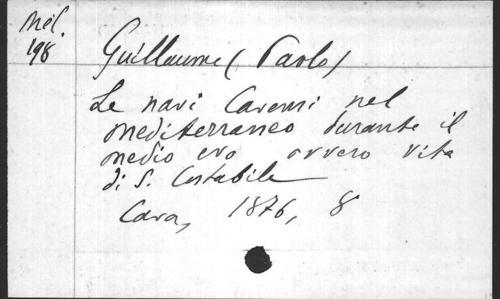 Mél.
198
Guillaume (Paolo)
Le navi Cavensi nel
mediterraneo durante il
medio evo ovvero vita
di S. Costabile
Cava, 1876, 8